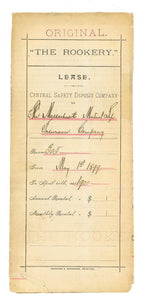 ORIGINAL.
"THE ROOKERY."
LEASE.
CENTRAL SAFETY DEPOSIT COMPANY
TO
Insurance Company
Room 905
From May 1st 1899
To April 30th 1900
Annual Rental $
Monthly Rental $